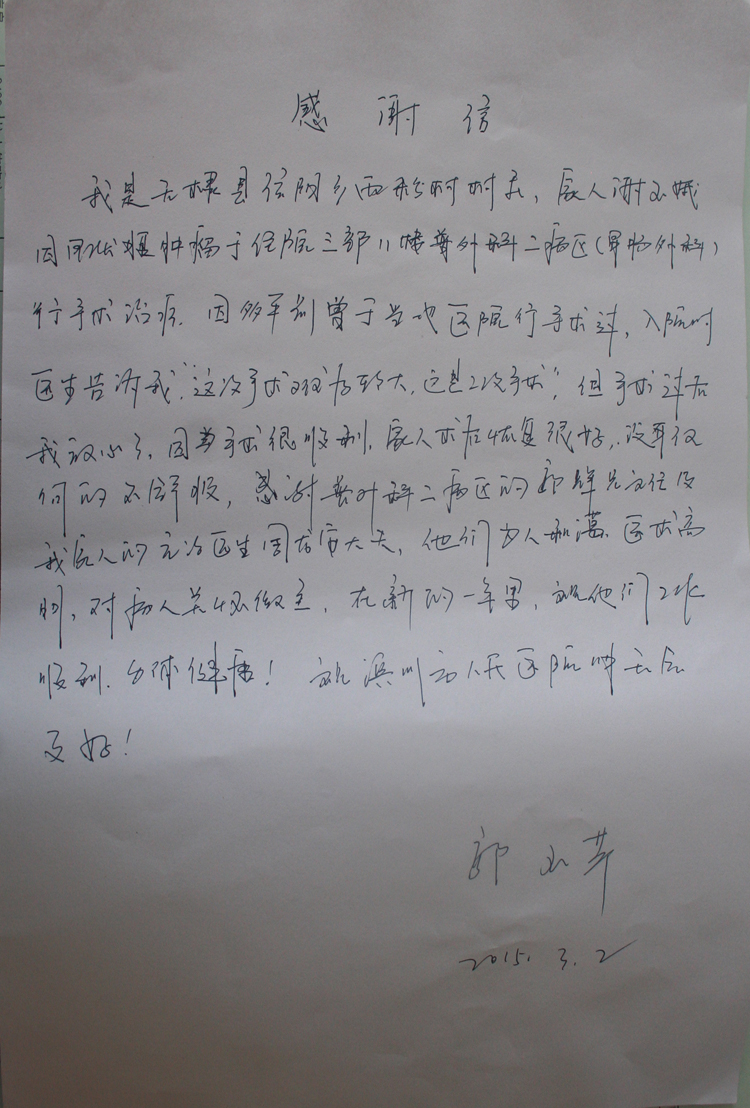 感谢信
我是无棣县信阳乡西 村村民，家人谢玉娥
因 肿瘤于住院三部11楼普外科二病区(胃肠外科)
行手术治疗. 因多年前曾于当地医院行手术过，入院时
医生告诉我“这次手术难度较大，这是二次手术”，但手术过后
我放心了，因为手术很顺利，家人术后恢复很好，没有任
何的不舒服，感谢普外科二病区的郭 主任及
我家人的主治医生周 大夫，他们为人和蔼 医术高
明，对病人关怀 ，在新的一年里，祝他们工作
顺利. 身体健康！ 祝滨州市人民医院明天会
更好！
郭玉
2015. 3. 2